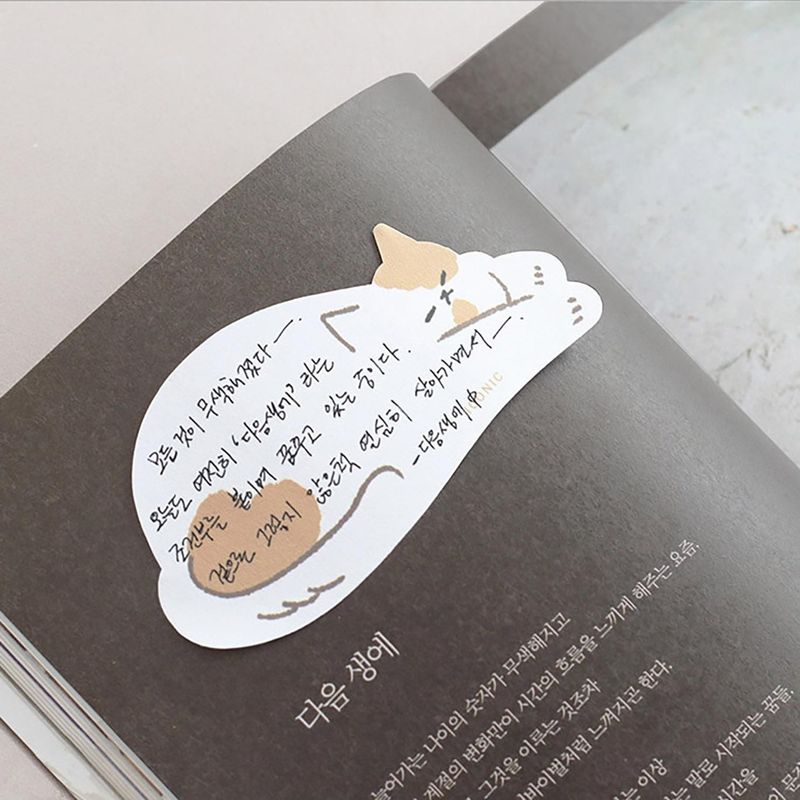 모든 것이 무색해졌다 —.
오늘도 여전히 '다음생에' 라는
조건부를 붙이며 꿈꾸고 있는 중이다.
겉으로 그렇지 않은척 열심히 살아가면서 —.
- 다음생에 中
ICONIC
다음 생에
늘어가는 나이의 숫자가 무색해지고
계절의 변화만이 시간의 흐름을 느끼게 해주는 요즘,
그것을 이루는 것조차
서바이벌처럼 느껴지곤 한다.
는 이상
는 말로 시작되는 꿈들,
시간을
이 문